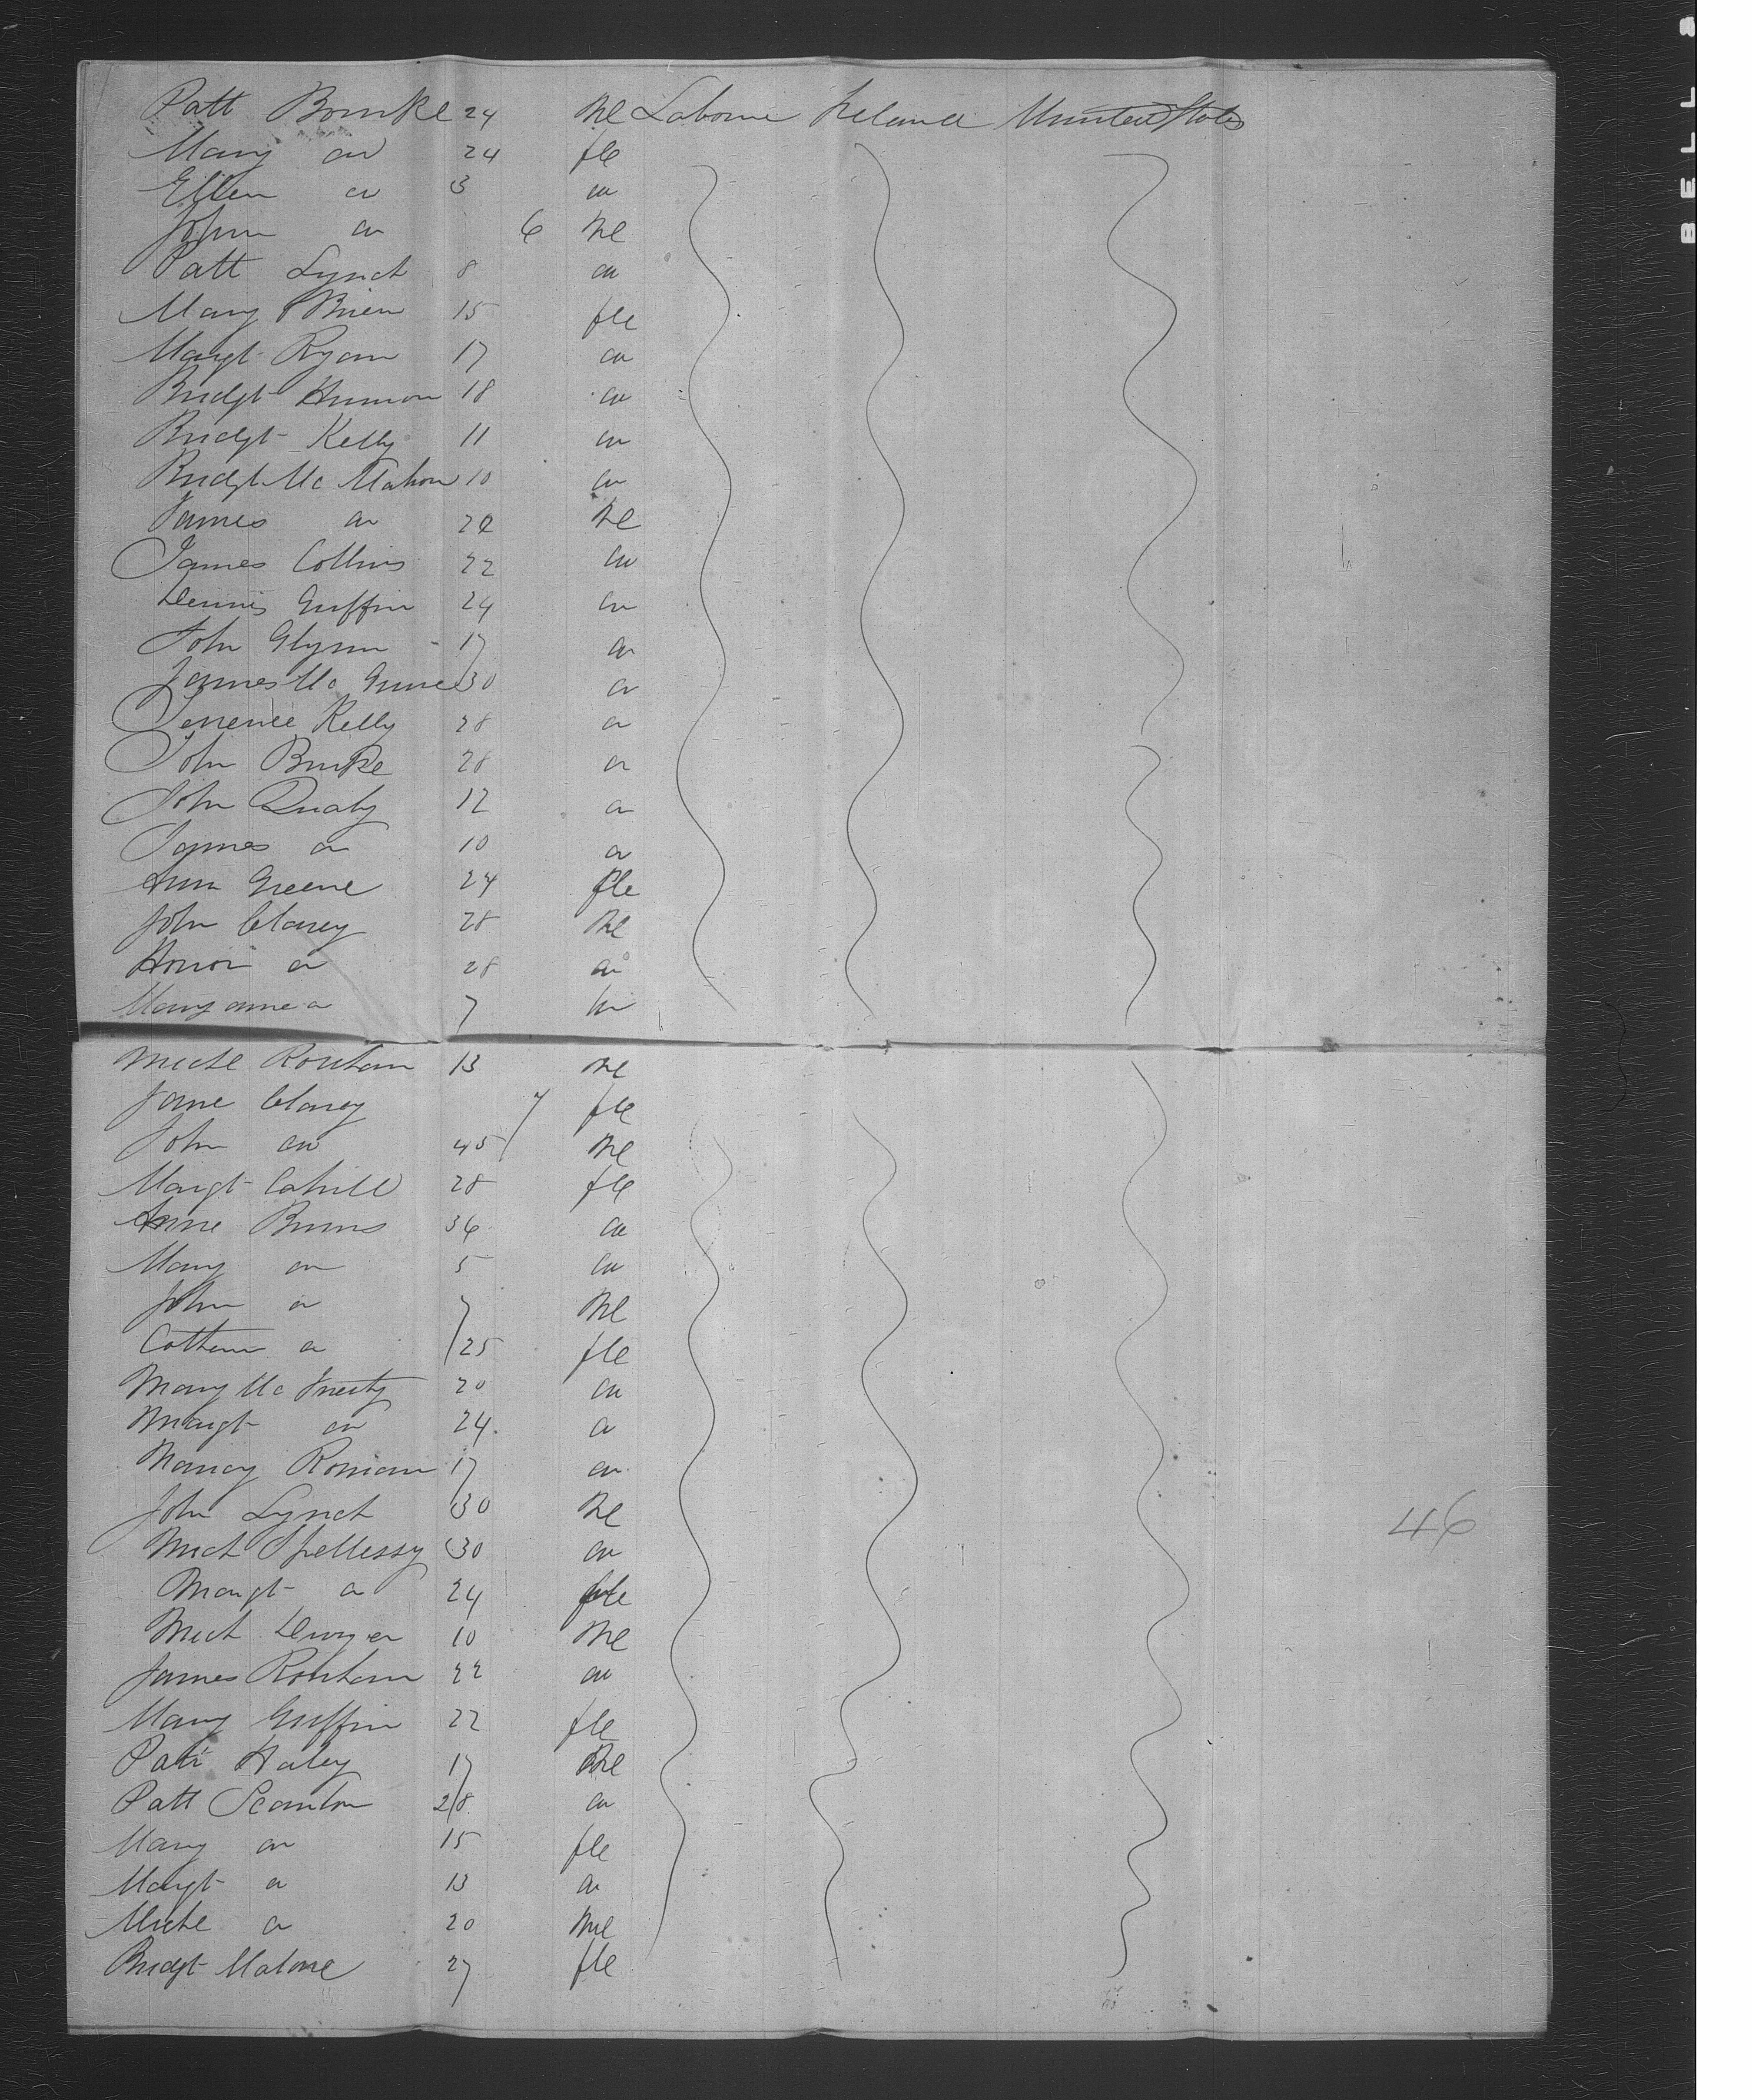 Patt Bourke 24 Me Laborer Ireland United States
Mary do 24 fle
Ellen do 3 do
John do 6 Me
Patt Lynch 8 do
Mary OBrien 15 fle
Margt Ryan 17 do
Bridgt 18 do
Bridgt Kelly 11 do
Bridgt Mc Mahon 10 do
James do 22 Me
James Collins 22 do
Dennis Griffin 24 do
John Glynn 17 do
James Mc 30 do
Terrence Kelly 28 do
John Burke 28 do
John Qualy 12 do
James do 10 do
Ann Greene 24 fle
John Clancy 28 Me
Honor do 28 do
Mary anne do 7 do
Michl 13 Me
Jane Clancy 7 fle
John do 45 Me
Margt Cahill 28 fle
Anne Burns 36 do
Mary do 5 do
John do 7 Me
do 25 fle
Mary Mc 20 do
Margt do 24 do
Nancy 17 do
John Lynch 30 Me
Mich Spellessy 30 do
Margt do 24 fle
Mich Dwyer 10 Me
James 22 do
Mary Griffin 22 fle
Patt Haley 17 Me
Patt Scanlon 28 do
Mary do 15 fle
Margt do 13 do
Michl do 20 Me
Bridgt Malone 27 fle
46
BELL &